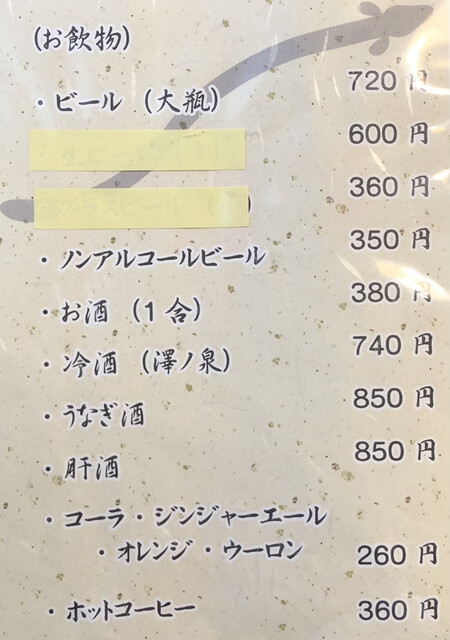 (お飲物)
・ビール (大瓶) 720 円
600 円
360 円
・ノンアルコールビール 350 円
・お酒 (1合) 380 円
・冷酒 (澤ノ泉) 740 円
・うなぎ酒 850 円
・肝酒 850 円
・コーラ・ジンジャーエール
・オレンジ・ウーロン 260 円
・ホットコーヒー 360 円